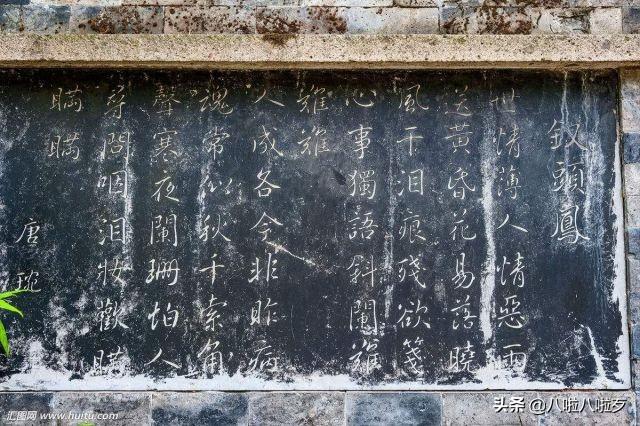 釵頭鳳
世情薄人情惡雨
送黃昏花易落曉
風干泪痕殘欲箋
心事獨語斜闌難
難難
人成各今非昨病
魂常似秋千索角
聲寒夜闌珊怕人
尋問咽泪妝歡瞞
瞞瞞
唐琬
汇图网 www.huitu.com
头条 @八啦八啦歹